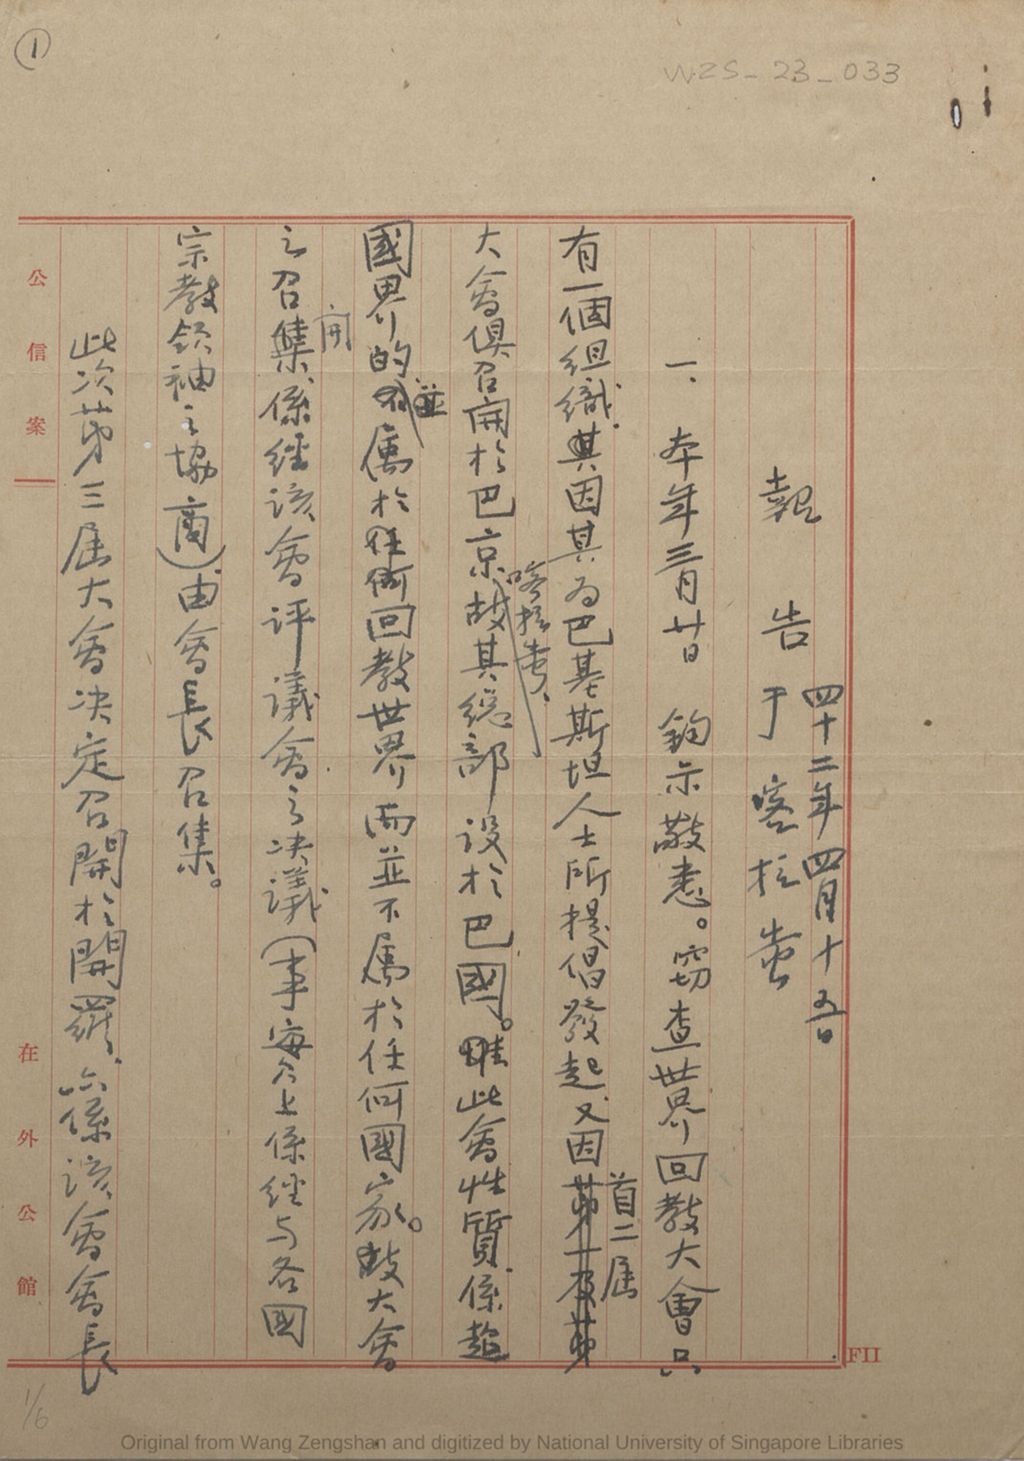 ①
WZS-23-033
四十二年四月十五日
報告 于喀拉蚩
一、本年三月廿日 鈞示敬悉。竊查世界回教大會只
有一個組織,其因其為巴基斯坦人士所提倡發起又因首二屆
大會俱召開於巴京喀拉蚩、故其總部設於巴國。唯此會性質係超
國界的並属於任何回教世界而並不属於任何國家。故大會
之召開係經該會評議會之决議(事實上係經与各國
宗教領袖之協商)由會長召集。
此次第三屆大會决定召開於開羅、亦係該會會長
公信案
在外公館
FII
1/6
Original from Wang Zengshan and digitized by National University of Singapore Libraries